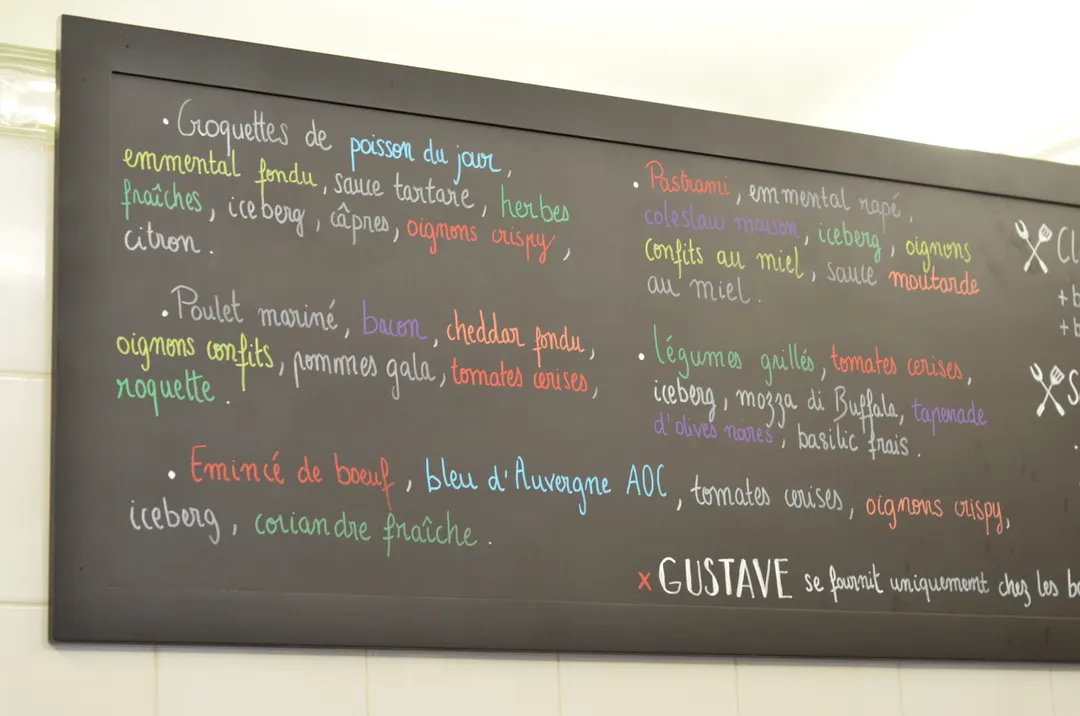 • Croquettes de poisson du jour,
emmental fondu, sauce tartare, herbes
fraîches, iceberg, câpres, oignons crispy,
citron.
• Poulet mariné, bacon, cheddar fondu,
oignons confits, pommes gala, tomates cerises,
roquette.
• Emincé de boeuf, bleu d'Auvergne AOC, tomates cerises, oignons crispy,
iceberg, coriandre fraîche.
• Pastrami, emmental rapé,
coleslaw maison, iceberg, oignons
confits au miel, sauce moutarde
au miel.
• légumes grillés, tomates cerises,
iceberg, mozza di Buffala, tapenade
d'olives noires, basilic frais.
x GUSTAVE se fournit uniquement chez les